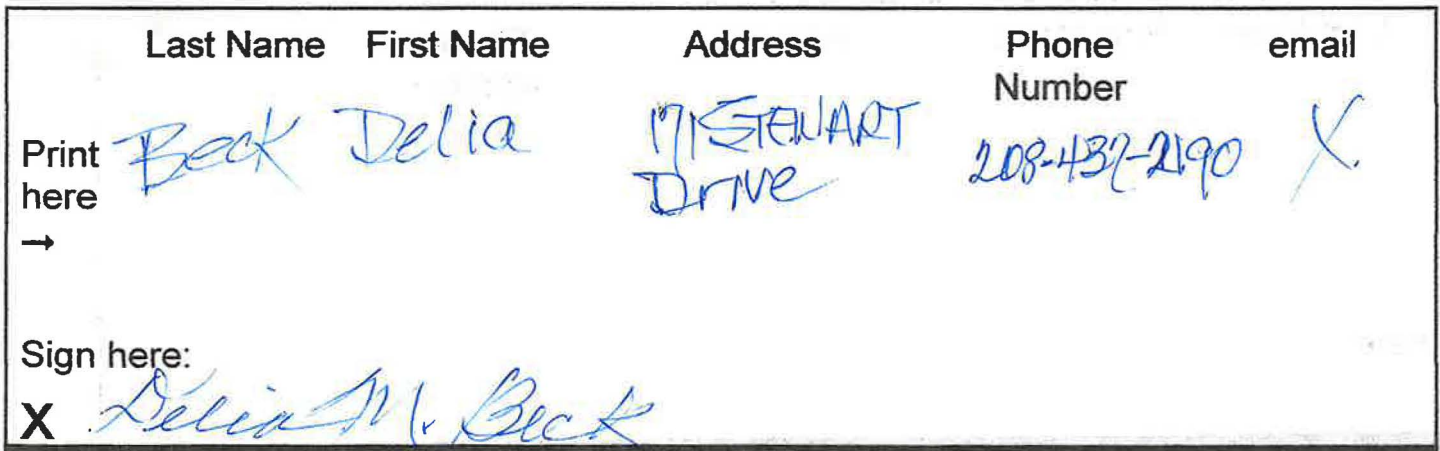 Last Name First Name Address Phone Number email
Print here → Beck Delia 171 STEWART Drive 208-437-2190 X
Sign here:
X Delia M. Beck